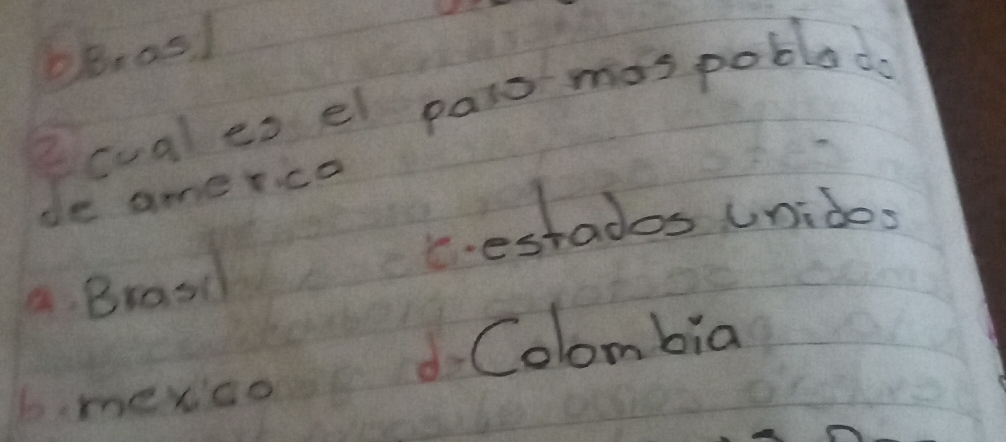 b Brasil
2 cual es el pais mas poblado
de america
a. Brasil c. estados unidos
b. mexico d. Colombia